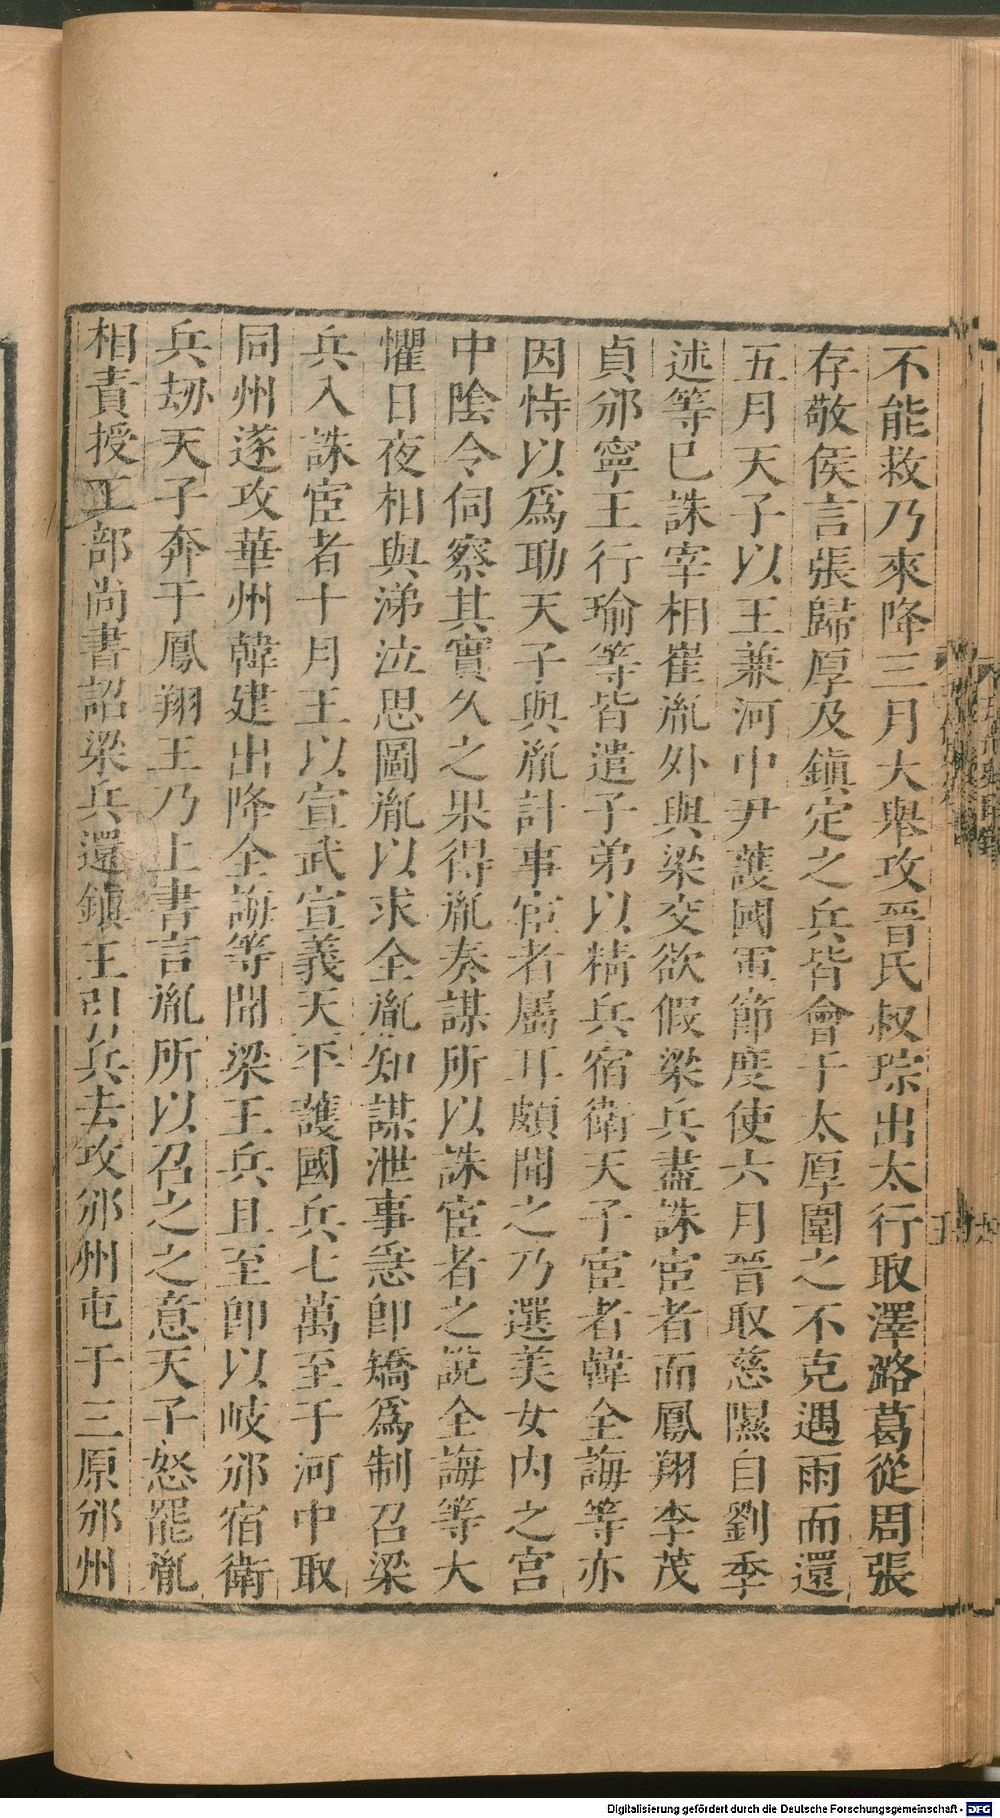 不能救乃來降三月大舉攻晉氏叔琮出太行取澤潞葛從周張
存敬侯言張歸厚及鎭定之兵皆會于太原圍之不克遇雨而還
五月天子以王兼河中尹護國軍節度使六月晉取慈隰自劉季
述等已誅宰相崔胤外與梁交欲假梁兵盡誅宦者而鳳翔李茂
貞邠寧王行瑜等皆遣子弟以精兵宿衛天子宦者韓全誨等亦
因恃以爲助天子與胤計事宦者屬耳頗聞之乃選美女内之宮
中陰令伺察其實久之果得胤奏謀所以誅宦者之說全誨等大
懼日夜相與涕泣思圖胤以求全胤知謀泄事急卽矯爲制召梁
兵入誅宦者十月王以宣武宣義天平護國兵七萬至于河中取
同州遂攻華州韓建出降全誨等聞梁王兵且至卽以岐邠宿衛
兵劫天子奔于鳳翔王乃上書言胤所以召之之意天子怒罷胤
相責授工部尚書詔梁兵還鎭王引兵去攻邠州屯于三原邠州
Digitalisierung gefördert durch die Deutsche Forschungsgemeinschaft - DFG